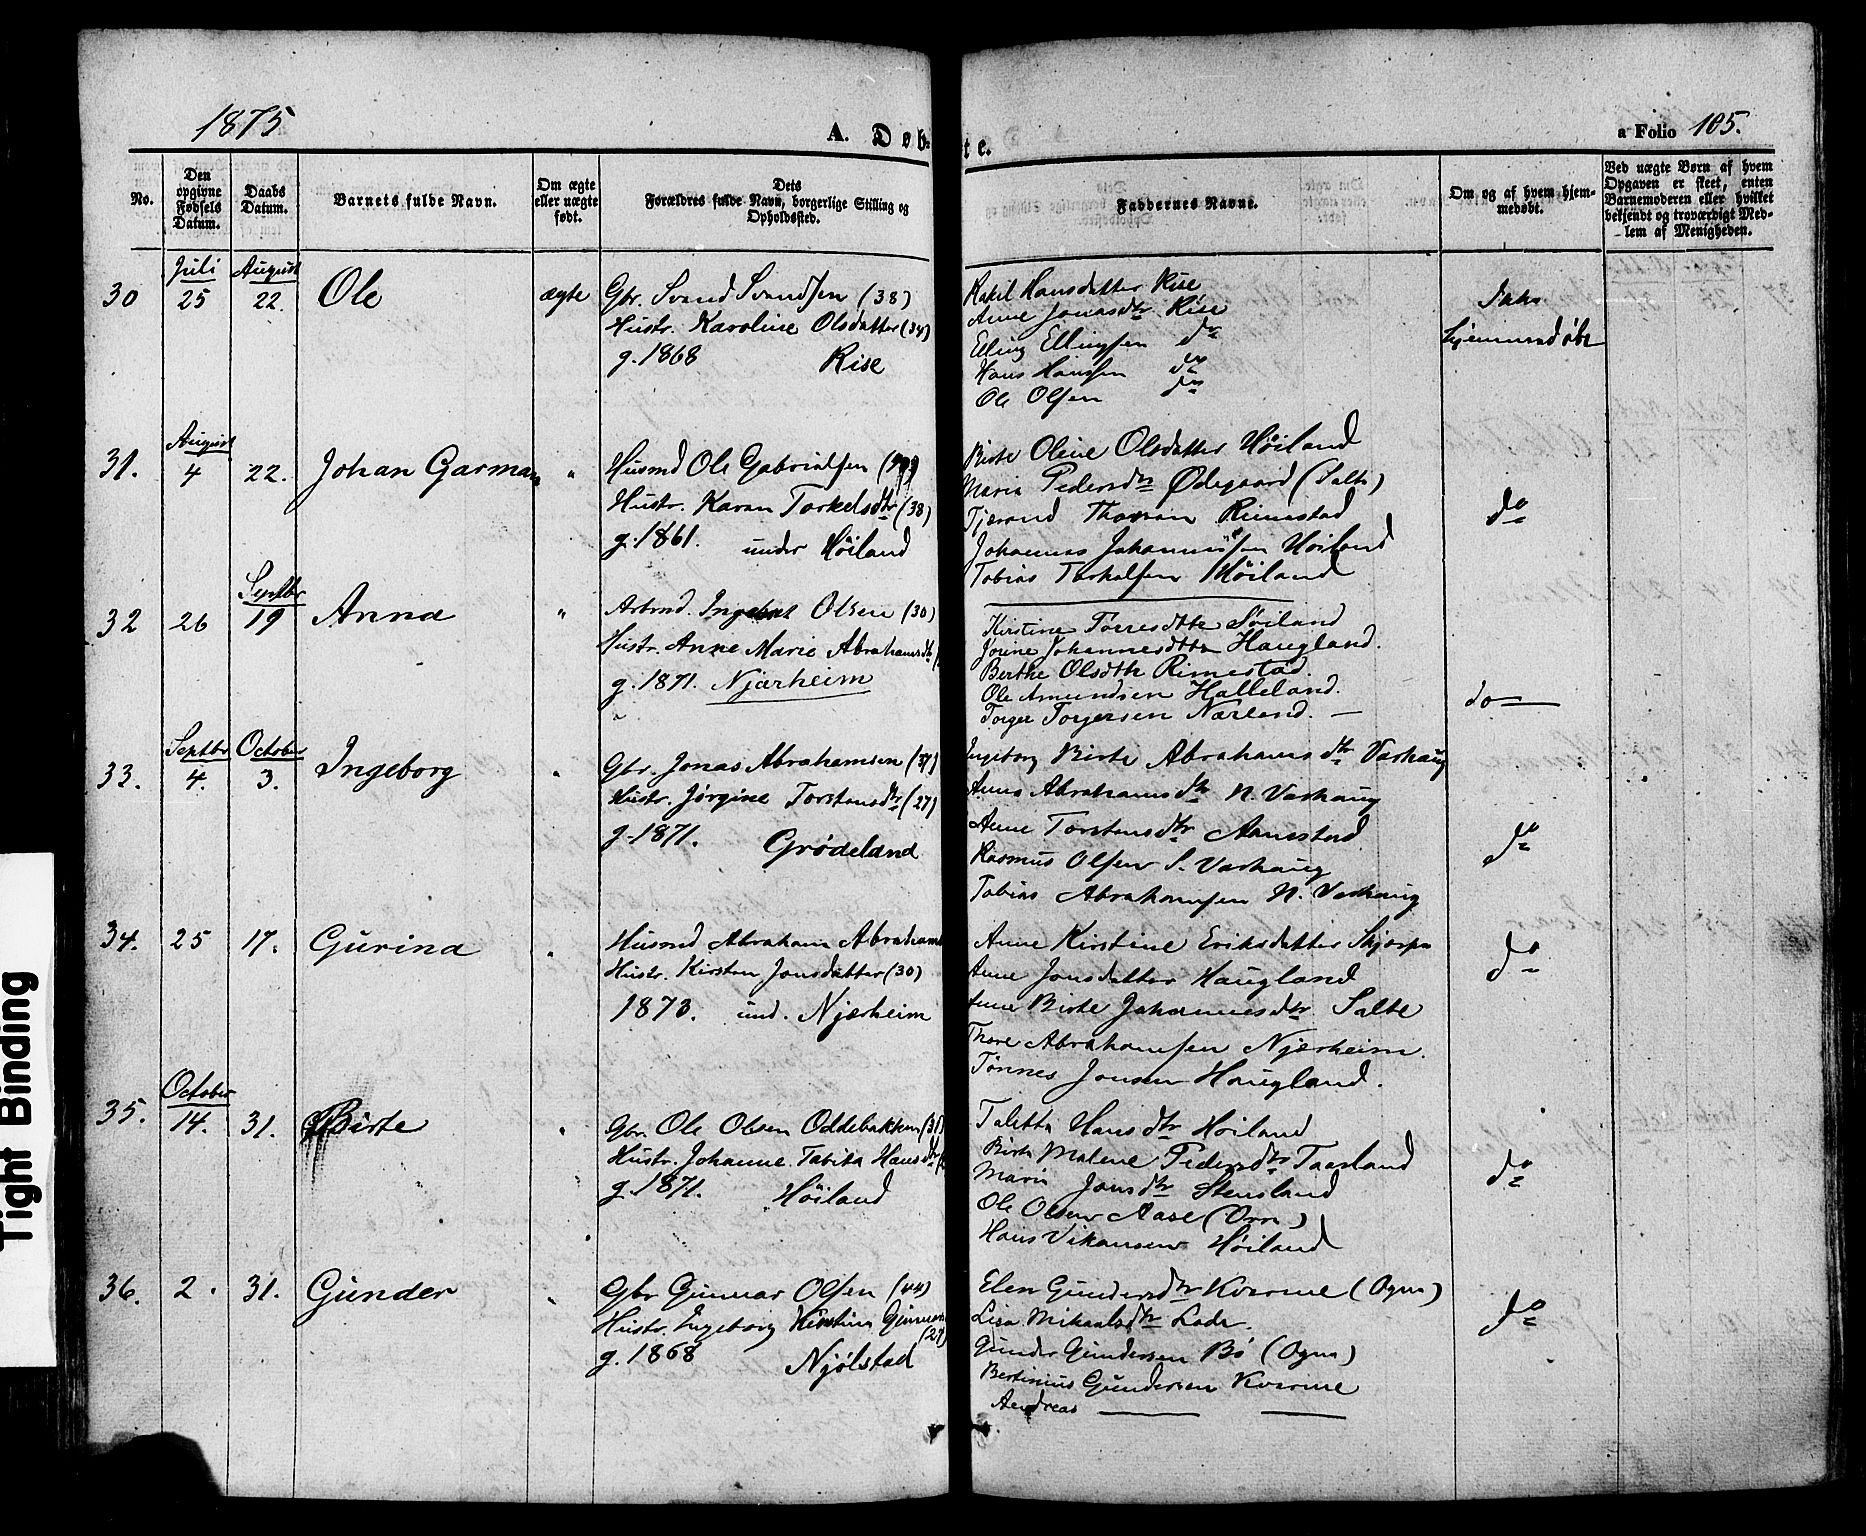 1875
A. Døbte.
a Folio 105.
No.
Den opgivne Fødsels Datum.
Daabs Datum.
Barnets fulde Navn.
Om ægte eller uægte født.
Dets Forældres fulde Navn, borgerlige Stilling og Opholdssted.
Faddernes Navne.
Om og af hvem hjemmedøbt.
Ved uægte Børn af hvem Opgaven er skeet, enten Barnemoderen eller hvilket bekjendt og troværdigt Medlem af Menigheden.
30
Juli
25
August
22.
Ole
ægte
Gbr. Svend Svendsen (38)
Hustr. Karoline Olsdatter (34)
g. 1868 Rise
Rakel Hansdatter Rise
Anne Jonasdtr Rise
Elling Ellingsen do
Hans Hansen do
Ole Olsen do
Ikke
hjemmedøbt
31.
August
4
22.
Johan Garman
"
Husmd Ole Gabrielsen
Hustr. Karen Torkelsdtr (38)
g. 1861. under Höiland
Birte Oline Olsdatter Höiland
Maria Pedersdtr Ødegaard (Salte)
Tjerand Thorsen Rimestad
Johannes Johannessen Höiland
Tobias Torkelsen Höiland
do
32
26
Septbr
19
Anna
"
Arbmd. Ingebret Olsen (30)
Hustr. Anne Marie Abrahamsdtr
g. 1871. Njærheim
Kirstine Torresdttr Söiland
Jorine Johannesdttr Haugland.
Berthe Olsdttr Rimestad.
Ole Amundsen Halleland.
Torger Torgersen Nærland. —
do
33.
Septbr
4.
October
3.
Ingeborg
"
Gbr. Jonas Abrahamsen (37)
Hustr. Jørgine Torstensdtr (27)
g. 1871. Grødeland
Ingeborg Birte Abrahamsdtr Varhaug
Anna Abrahamsdtr N. Varhaug
Anne Torstensdtr Aanestad
Rasmus Olsen S. Varhaug
Tobias Abrahamsen N. Varhaug
do
34.
25
17.
Gurina
"
Husmd Abraham Abrahams
Hustr. Kirsten Jonsdatter (30)
1873. und. Njærheim
Anne Kirstine Eriksdatter Skjærpe
Anne Jonsdatter Haugland
Anne Birte Johannesdtr Salte
Thore Abrahamsen Njærheim.
Tønnes Jonsen Haugland.
do
35.
October
14.
31.
Birte
"
Gbr. Ole Olsen Oddebakken (31)
Hustr. Johanne Tabita Hansdtr
g. 1871. Höiland
Taletta Hansdtr Höiland
Birta Malene Pedersdtr Taarland
Marie Jonsdtr Stensland
Ole Olsen Aase (Orre)
Hans Vikansen Höiland
do
36.
2.
31.
Gunder
"
Gbr Gunnar Olsen (44)
Hustr. Ingeborg Kirstine Gunnars
(29)
g. 1868 Njølstad
Elen Gundersdtr Kverme (Ogna)
Lisa Mikaelsdtr Lode.
Gunder Gundersen Bö (Ogna)
Bertinius Gundersen Kverme
Aendreas — —
do
Tight Binding